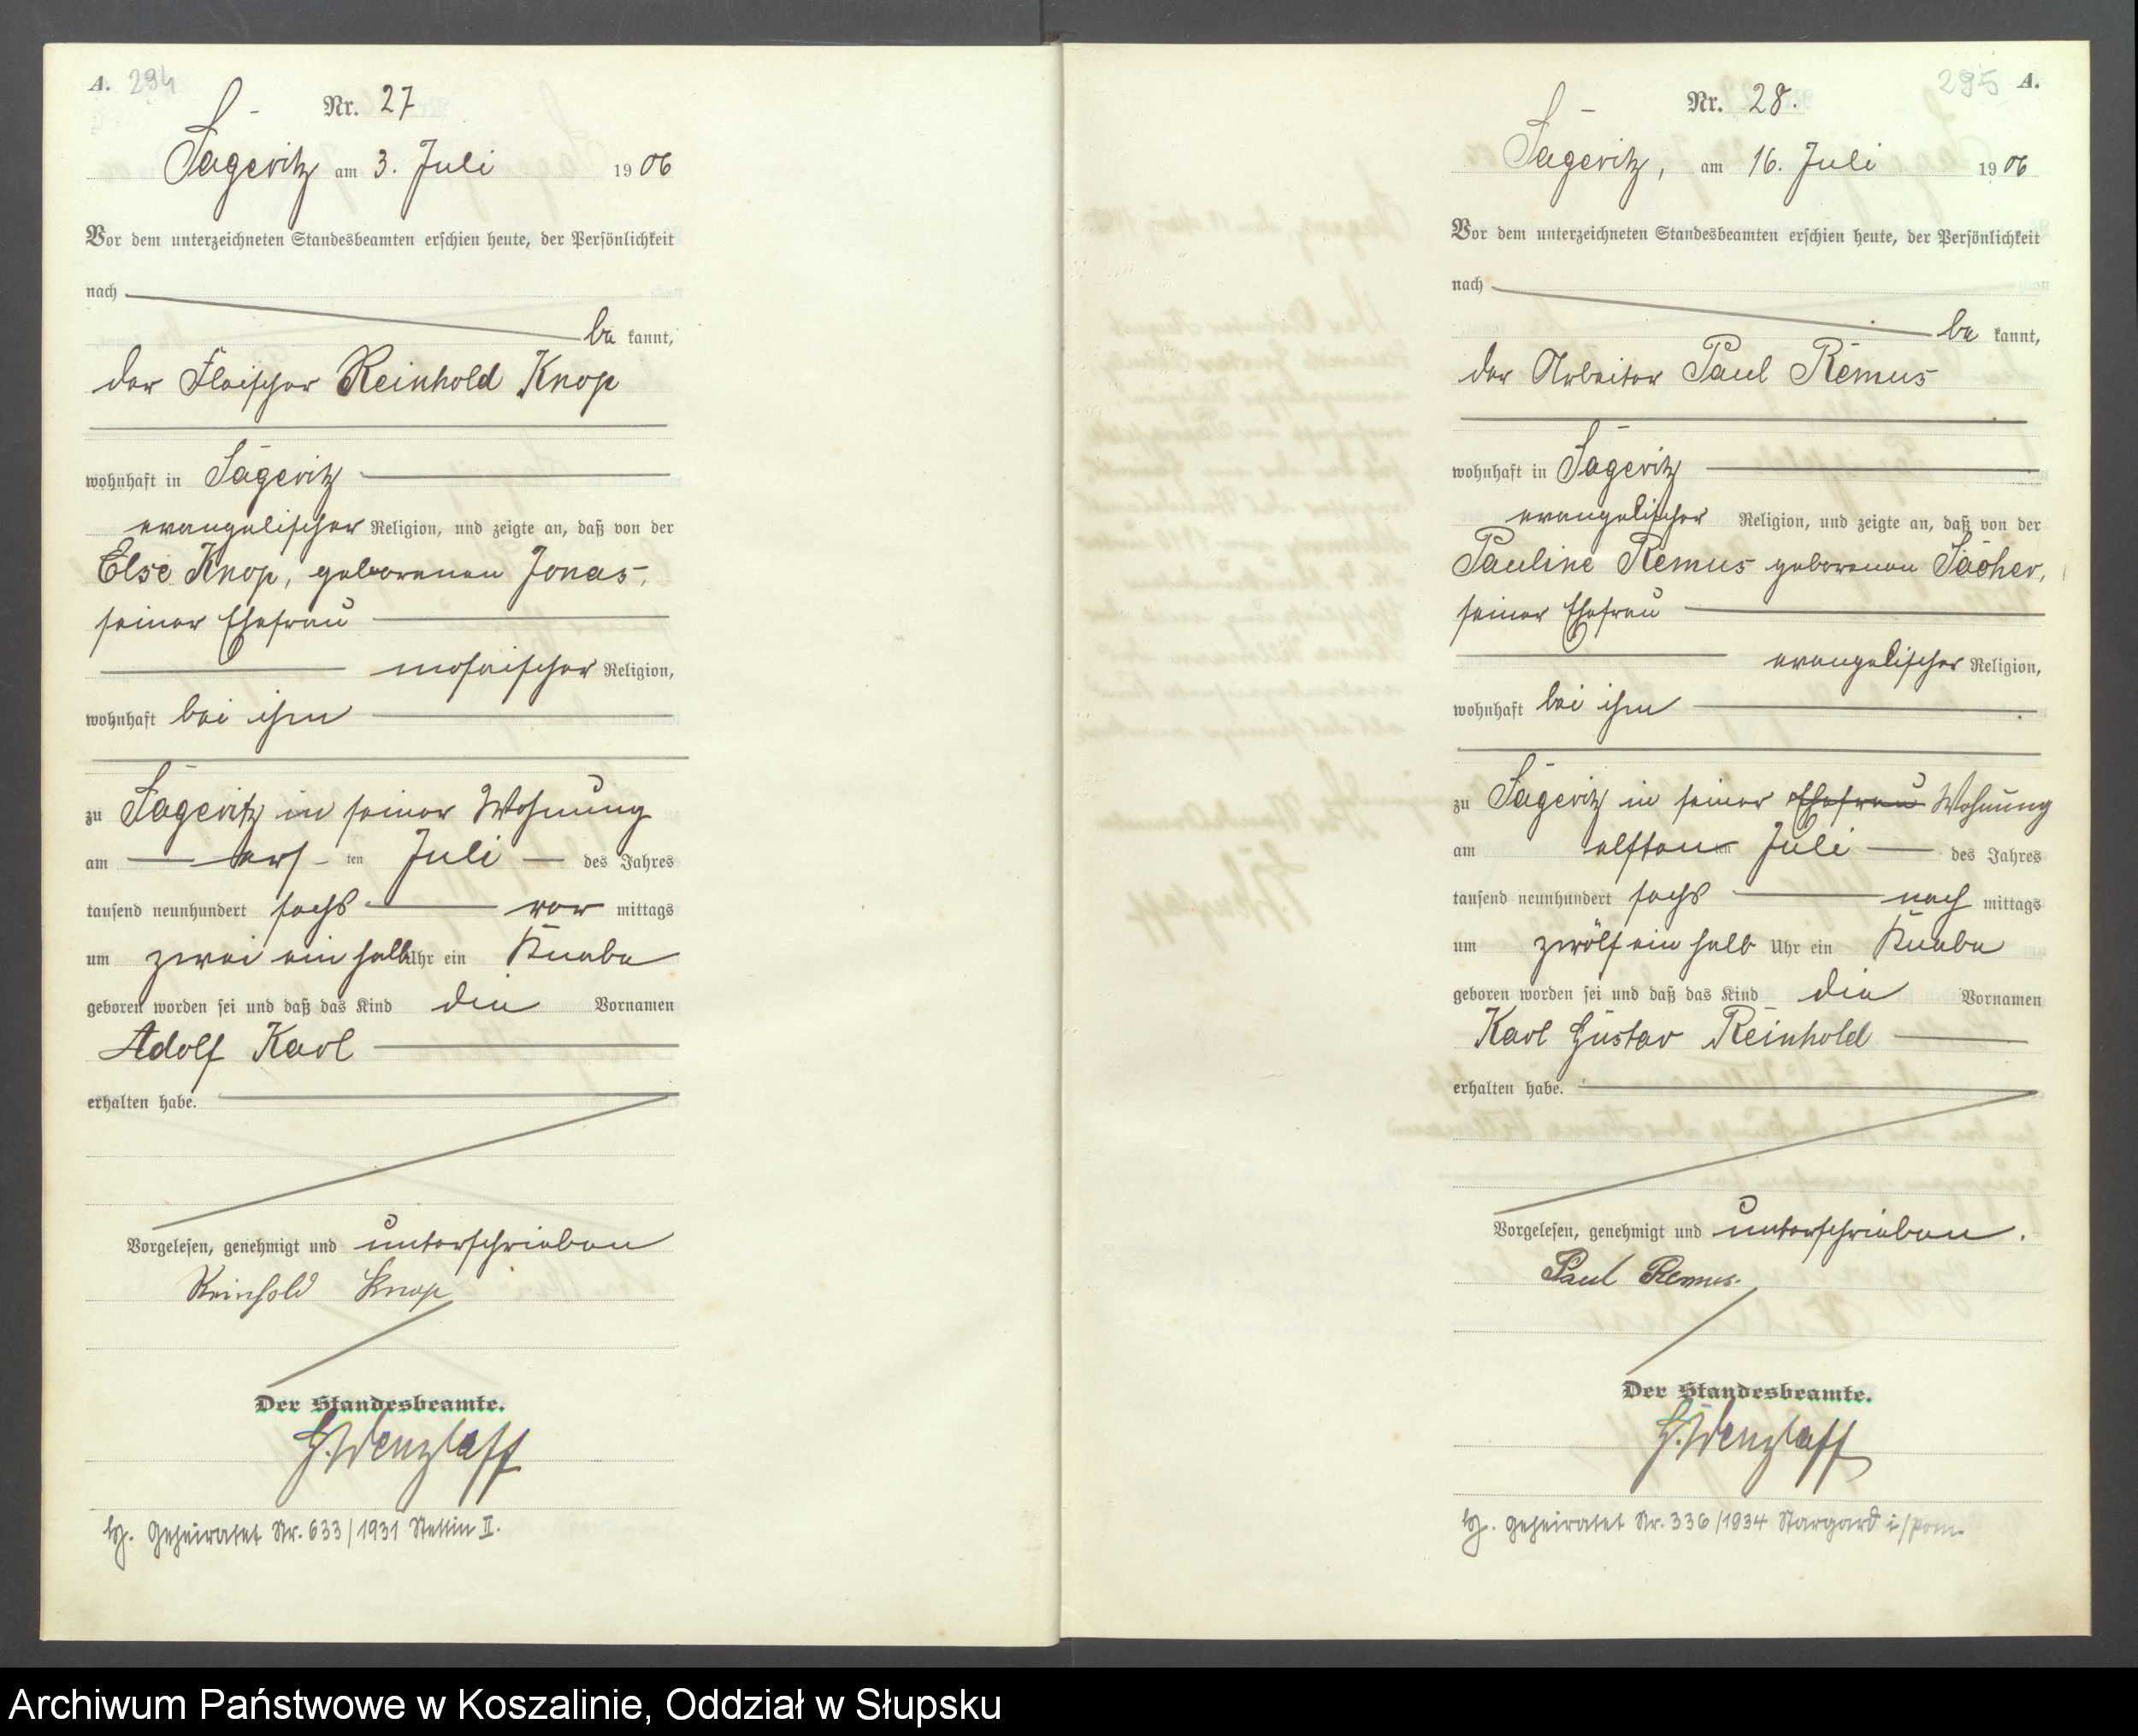 A. 294
Nr. 27
Sageritz am 3. Juli 1906
Vor dem unterzeichneten Standesbeamten erschien heute, der Persönlichkeit
nach
be kannt,
der Fleischer Reinhold Knop
wohnhaft in Sageritz
evangelischer Religion, und zeigte an, daß von der
Else Knop, geborenen Jonas,
seiner Ehefrau
mosaischer Religion,
wohnhaft bei ihm
zu Sageritz in seiner Wohnung
am ersten Juli des Jahres
tausend neunhundert sechs vor mittags
um zwei ein halb Uhr ein Knabe
geboren worden sei und daß das Kind die Vornamen
Adolf Karl
erhalten habe.
Vorgelesen, genehmigt und unterschrieben
Reinhold Knop
Der Standesbeamte.
G. Wenzlaff
Geheiratet Nr. 633/1931 Stettin II.
295 A.
Nr. 28.
Sageritz, am 16. Juli 1906
Vor dem unterzeichneten Standesbeamten erschien heute, der Persönlichkeit
nach
be kannt,
der Arbeiter Paul Remus
wohnhaft in Sageritz
evangelischer Religion, und zeigte an, daß von der
Pauline Remus geborenen Sacher,
seiner Ehefrau
evangelischer Religion,
wohnhaft bei ihm
zu Sageritz in seiner Ehefrau Wohnung
am elften ten Juli des Jahres
tausend neunhundert sechs nach mittags
um zwölf ein halb Uhr ein Knabe
geboren worden sei und daß das Kind die Vornamen
Karl Gustav Reinhold
erhalten habe.
Vorgelesen, genehmigt und unterschrieben.
Paul Remus.
Der Standesbeamte.
G. Wenzlaff
geheiratet Nr. 336/1934 Stargard i/Pom.
Archiwum Państwowe w Koszalinie, Oddział w Słupsku